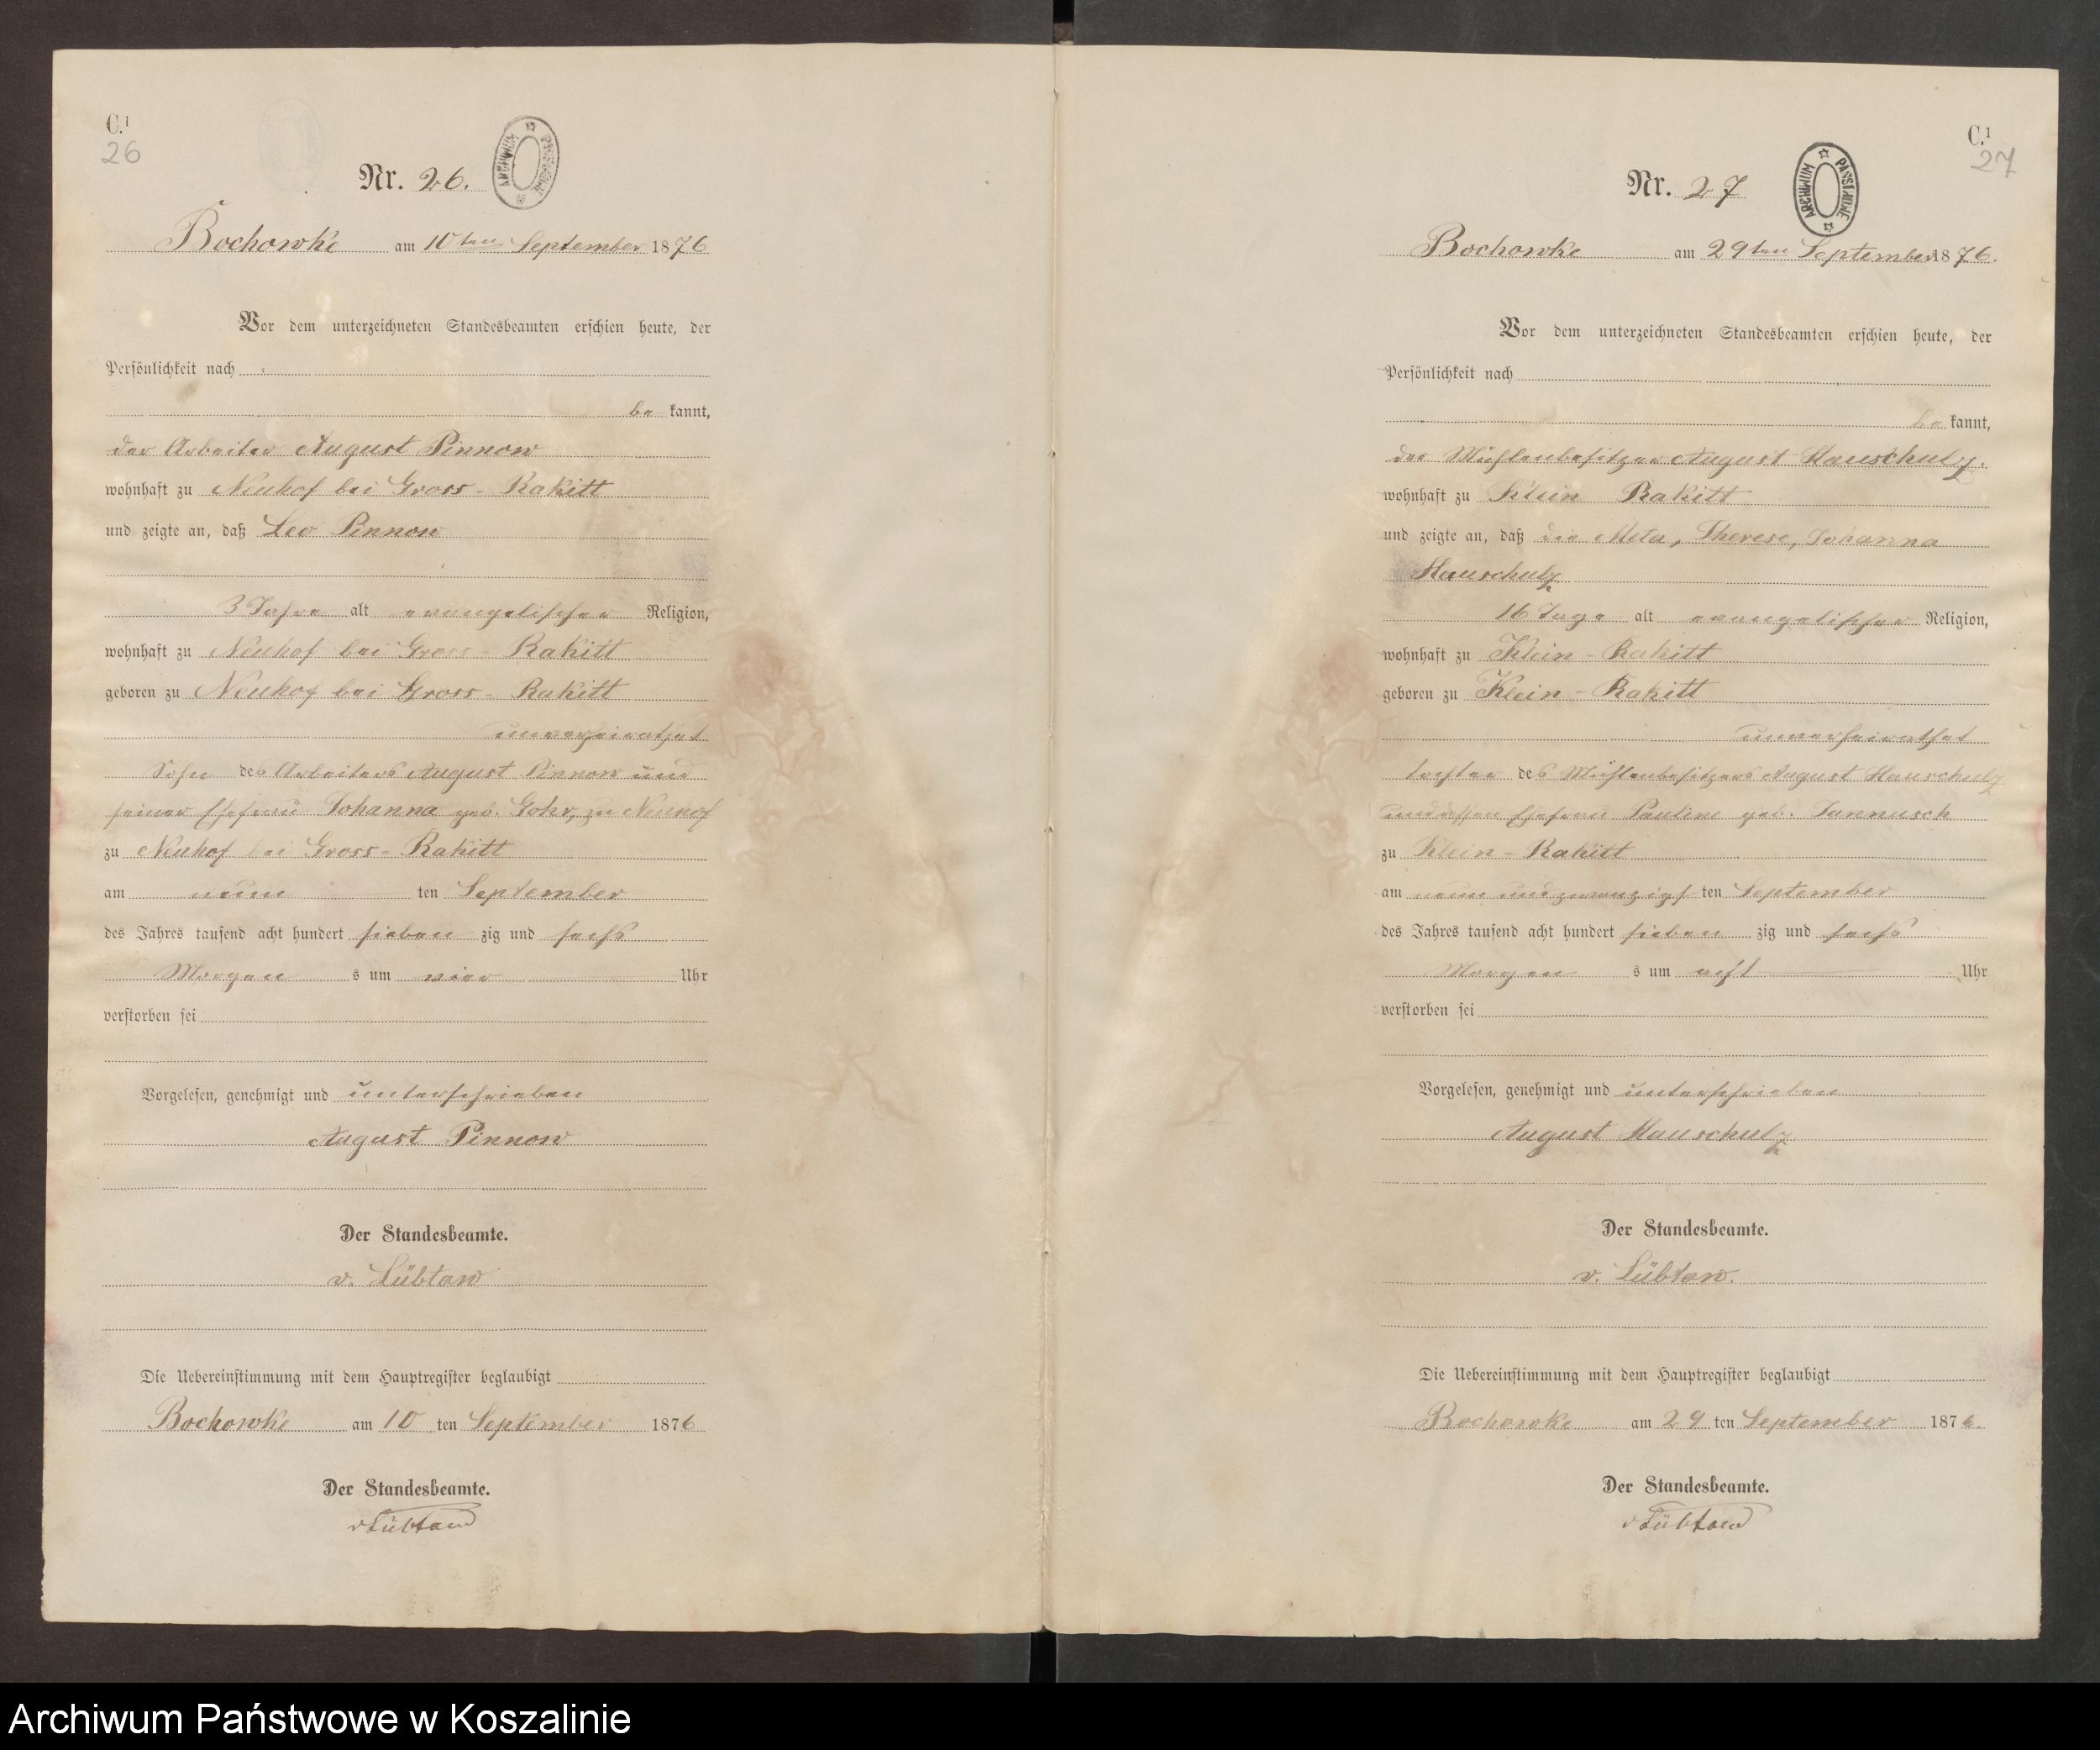 C.1
26
Nr. 26.
ARCHIWUM PAŃSTWOWE
Bochowke am 10ten September 1876
Vor dem unterzeichneten Standesbeamten erschien heute, der
Persönlichkeit nach
be kannt,
der Arbeiter August Pinnow
wohnhaft zu Neuhof bei Gross-Rakitt
und zeigte an, daß Leo Pinnow
3 Jahre alt evangelischer Religion,
wohnhaft zu Neuhof bei Gross-Rakitt
geboren zu Neuhof bei Gross-Rakitt
unverheirathet
Sohn des Arbeiters August Pinnow und
seiner Ehefrau Johanna geb. Gohr, zu Neuhof
zu Neuhof bei Gross-Rakitt
am neun ten September
des Jahres tausend acht hundert sieben zig und sechs
Morgen s um vier Uhr
verstorben sei
Vorgelesen, genehmigt und unterschrieben
August Pinnow
Der Standesbeamte.
v. Lübtow
Die Uebereinstimmung mit dem Hauptregister beglaubigt
Bochowke am 10 ten September 1876
Der Standesbeamte.
vLübtow
C.1
27
Nr. 27
ARCHIWUM PAŃSTWOWE
Bochowke am 29ten September 1876.
Vor dem unterzeichneten Standesbeamten erschien heute, der
Persönlichkeit nach
be kannt,
der Mühlenbesitzer August Hauschulz.
wohnhaft zu Klein Rakitt
und zeigte an, daß die Meta, Therese, Johanna
Hauschulz
16 Tage alt evangelischer Religion,
wohnhaft zu Klein-Rakitt
geboren zu Klein-Rakitt
unverheirathet
Tochter des Mühlenbesitzers August Hauschulz
und dessen Ehefrau Pauline geb. Jannusch
zu Klein-Rakitt
am neun und zwanzigs ten September
des Jahres tausend acht hundert sieben zig und sechs
Morgen s um acht Uhr
verstorben sei
Vorgelesen, genehmigt und unterschrieben
August Hauschulz
Der Standesbeamte.
v. Lübtow.
Die Uebereinstimmung mit dem Hauptregister beglaubigt
Bochowke am 29 ten September 1876.
Der Standesbeamte.
vLübtow
Archiwum Państwowe w Koszalinie